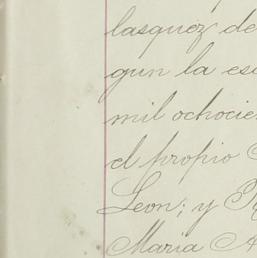 lasquez de
gun la esc
mil ochocie
el propio
Leon; y
Maria A